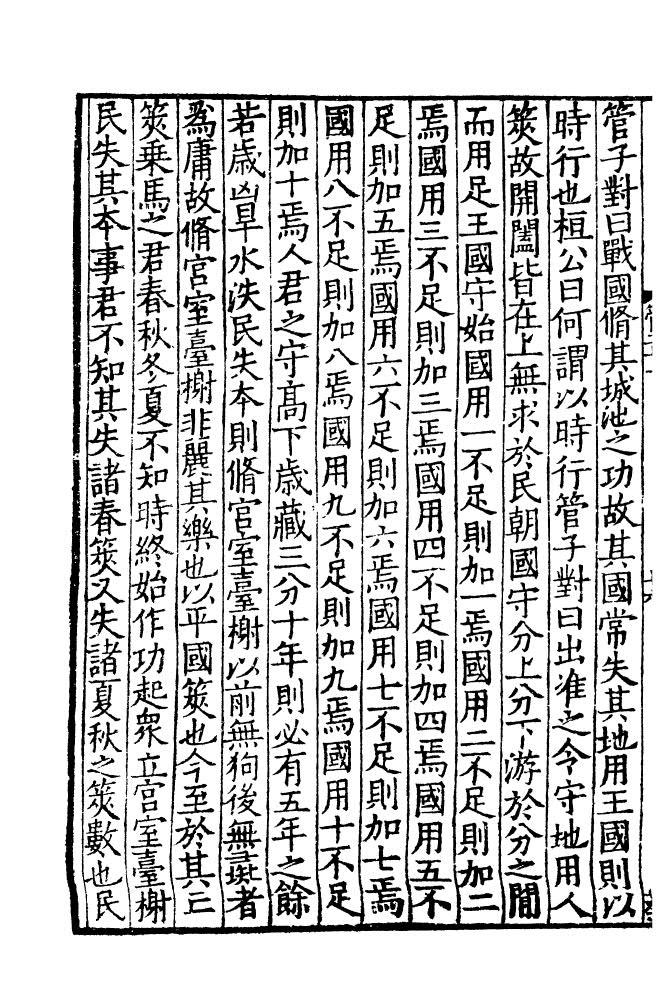 管子對曰戰國脩其城池之功故其國常失其地用王國則以
時行也桓公曰何謂以時行管子對曰出准之令守地用人
筴故開闔皆在上無求於民朝國守分上分下游於分之閒
而用足王國守始國用一不足則加一焉國用二不足則加二
焉國用三不足則加三焉國用四不足則加四焉國用五不
足則加五焉國用六不足則加六焉國用七不足則加七焉
國用八不足則加八焉國用九不足則加九焉國用十不足
則加十焉人君之守高下歲藏三分十年則必有五年之餘
若歲凶旱水泆民失本則脩宮室臺榭以前無狗後無彘者
爲庸故脩宮室臺榭非麗其樂也以平國筴也今至於其亡
筴乗馬之君春秋冬夏不知時終始作功起衆立宮室臺榭
民失其本事君不知其失諸春筴又失諸夏秋之筴數也民